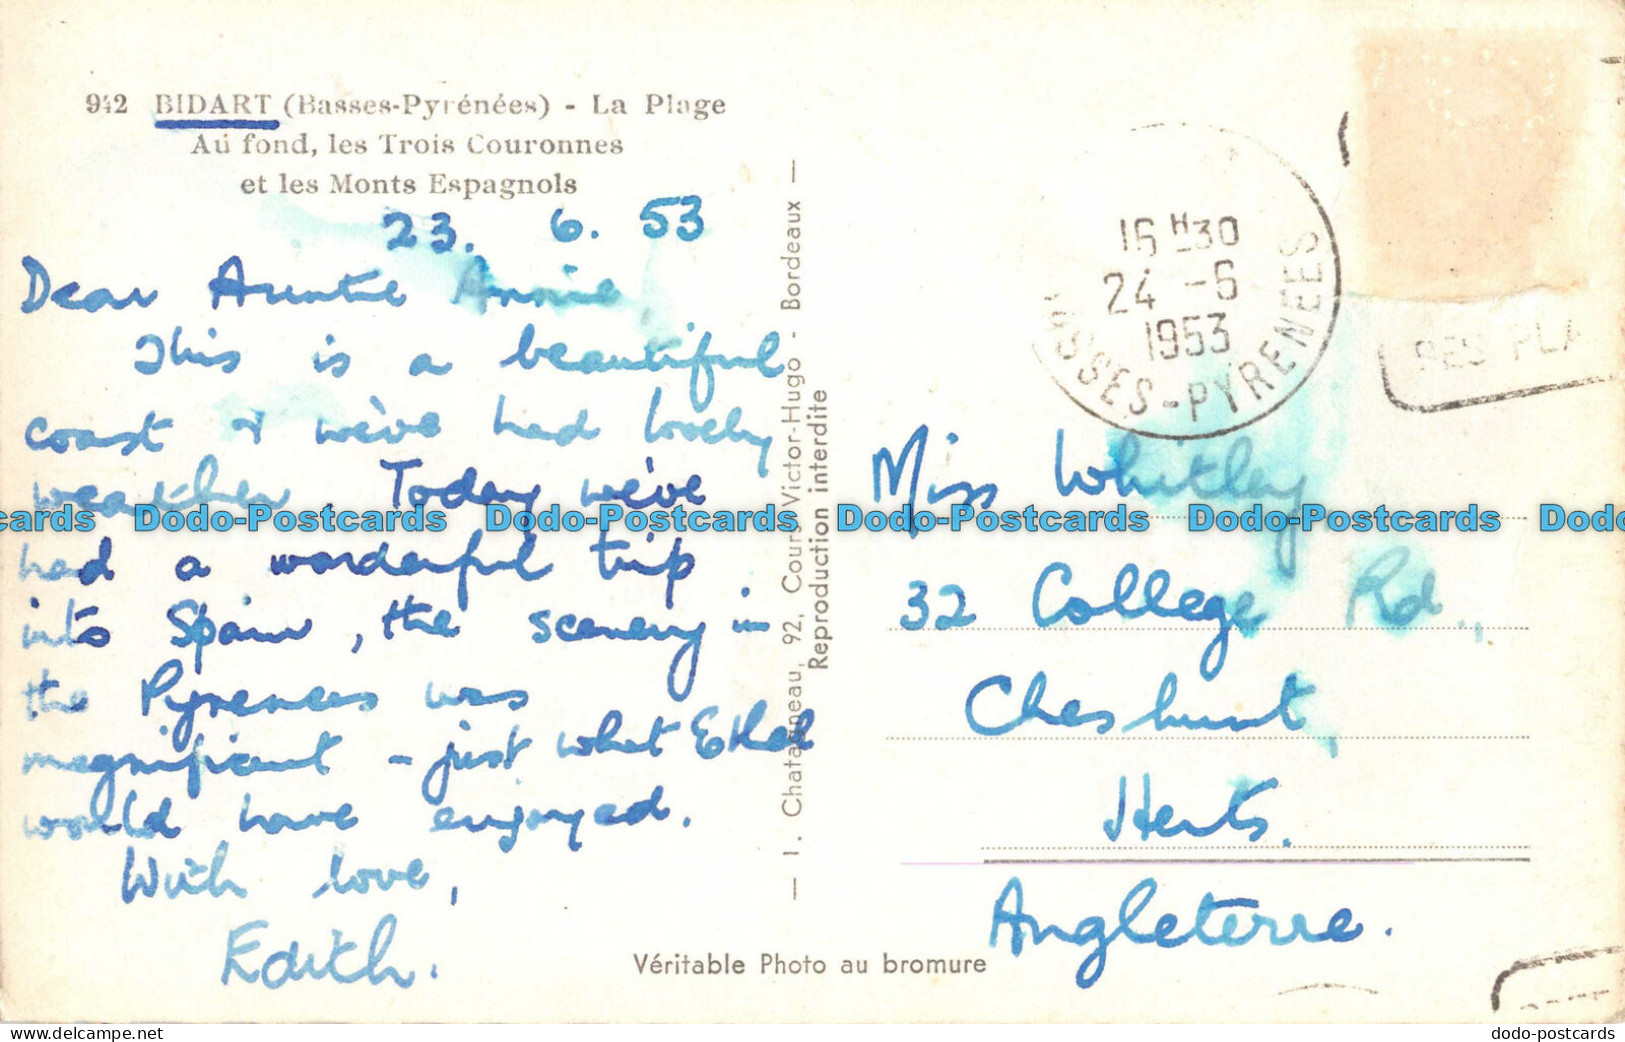 942 BIDART (Basses-Pyrénées) - La Plage
Au fond, les Trois Couronnes
et les Monts Espagnols
23. 6. 53
Dear Auntie Annie
This is a beautiful
coast & we've had lovely
weather. Today we've
had a wonderful trip
into Spain, the scenery in
the Pyrenees was
magnificant - just what Ethel
would have enjoyed.
With love,
Edith.
I. Chatagneau, 92, Cours Victor-Hugo - Bordeaux
Reproduction interdite
Véritable Photo au bromure
16 H30
24 -6
1953
BASSES-PYRENEES
Miss Whitley
32 College Rd.,
Cheshunt,
Herts.
Angleterre.
Dodo-Postcards Dodo-Postcards Dodo-Postcards Dodo-Postcards
www.delcampe.net
dodo-postcards